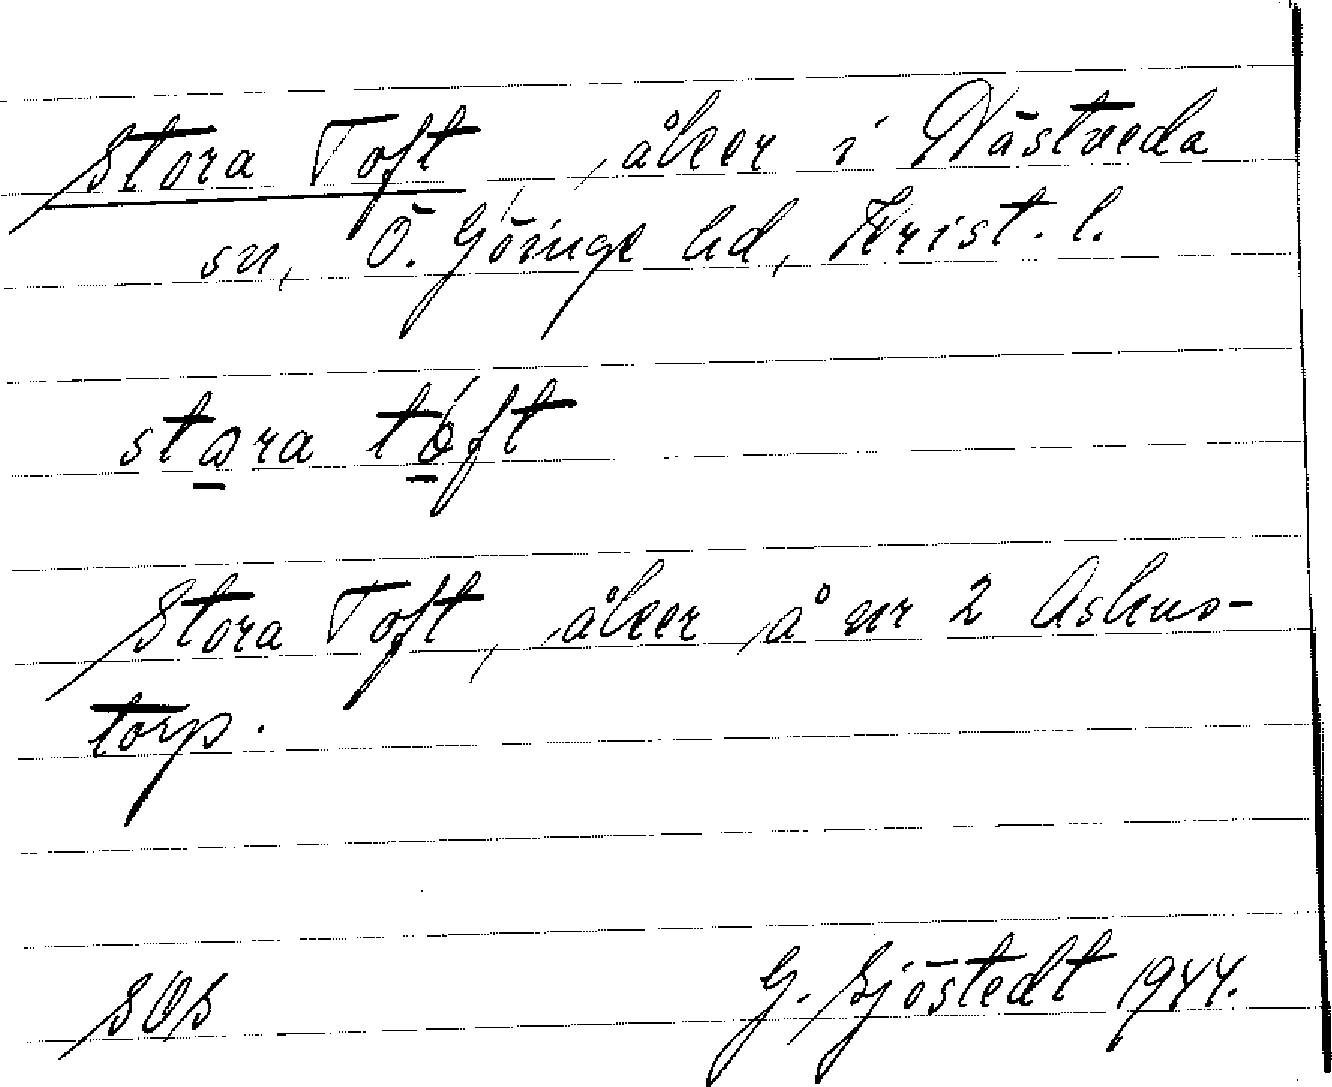 Stora Toft, åker i Nästveda
sn, Ö. Göinge hd, Krist. l.
stora tóft
Stora Toft, åker å nr 2 Askus-
torp.
SOS
G. Sjöstedt 1944.